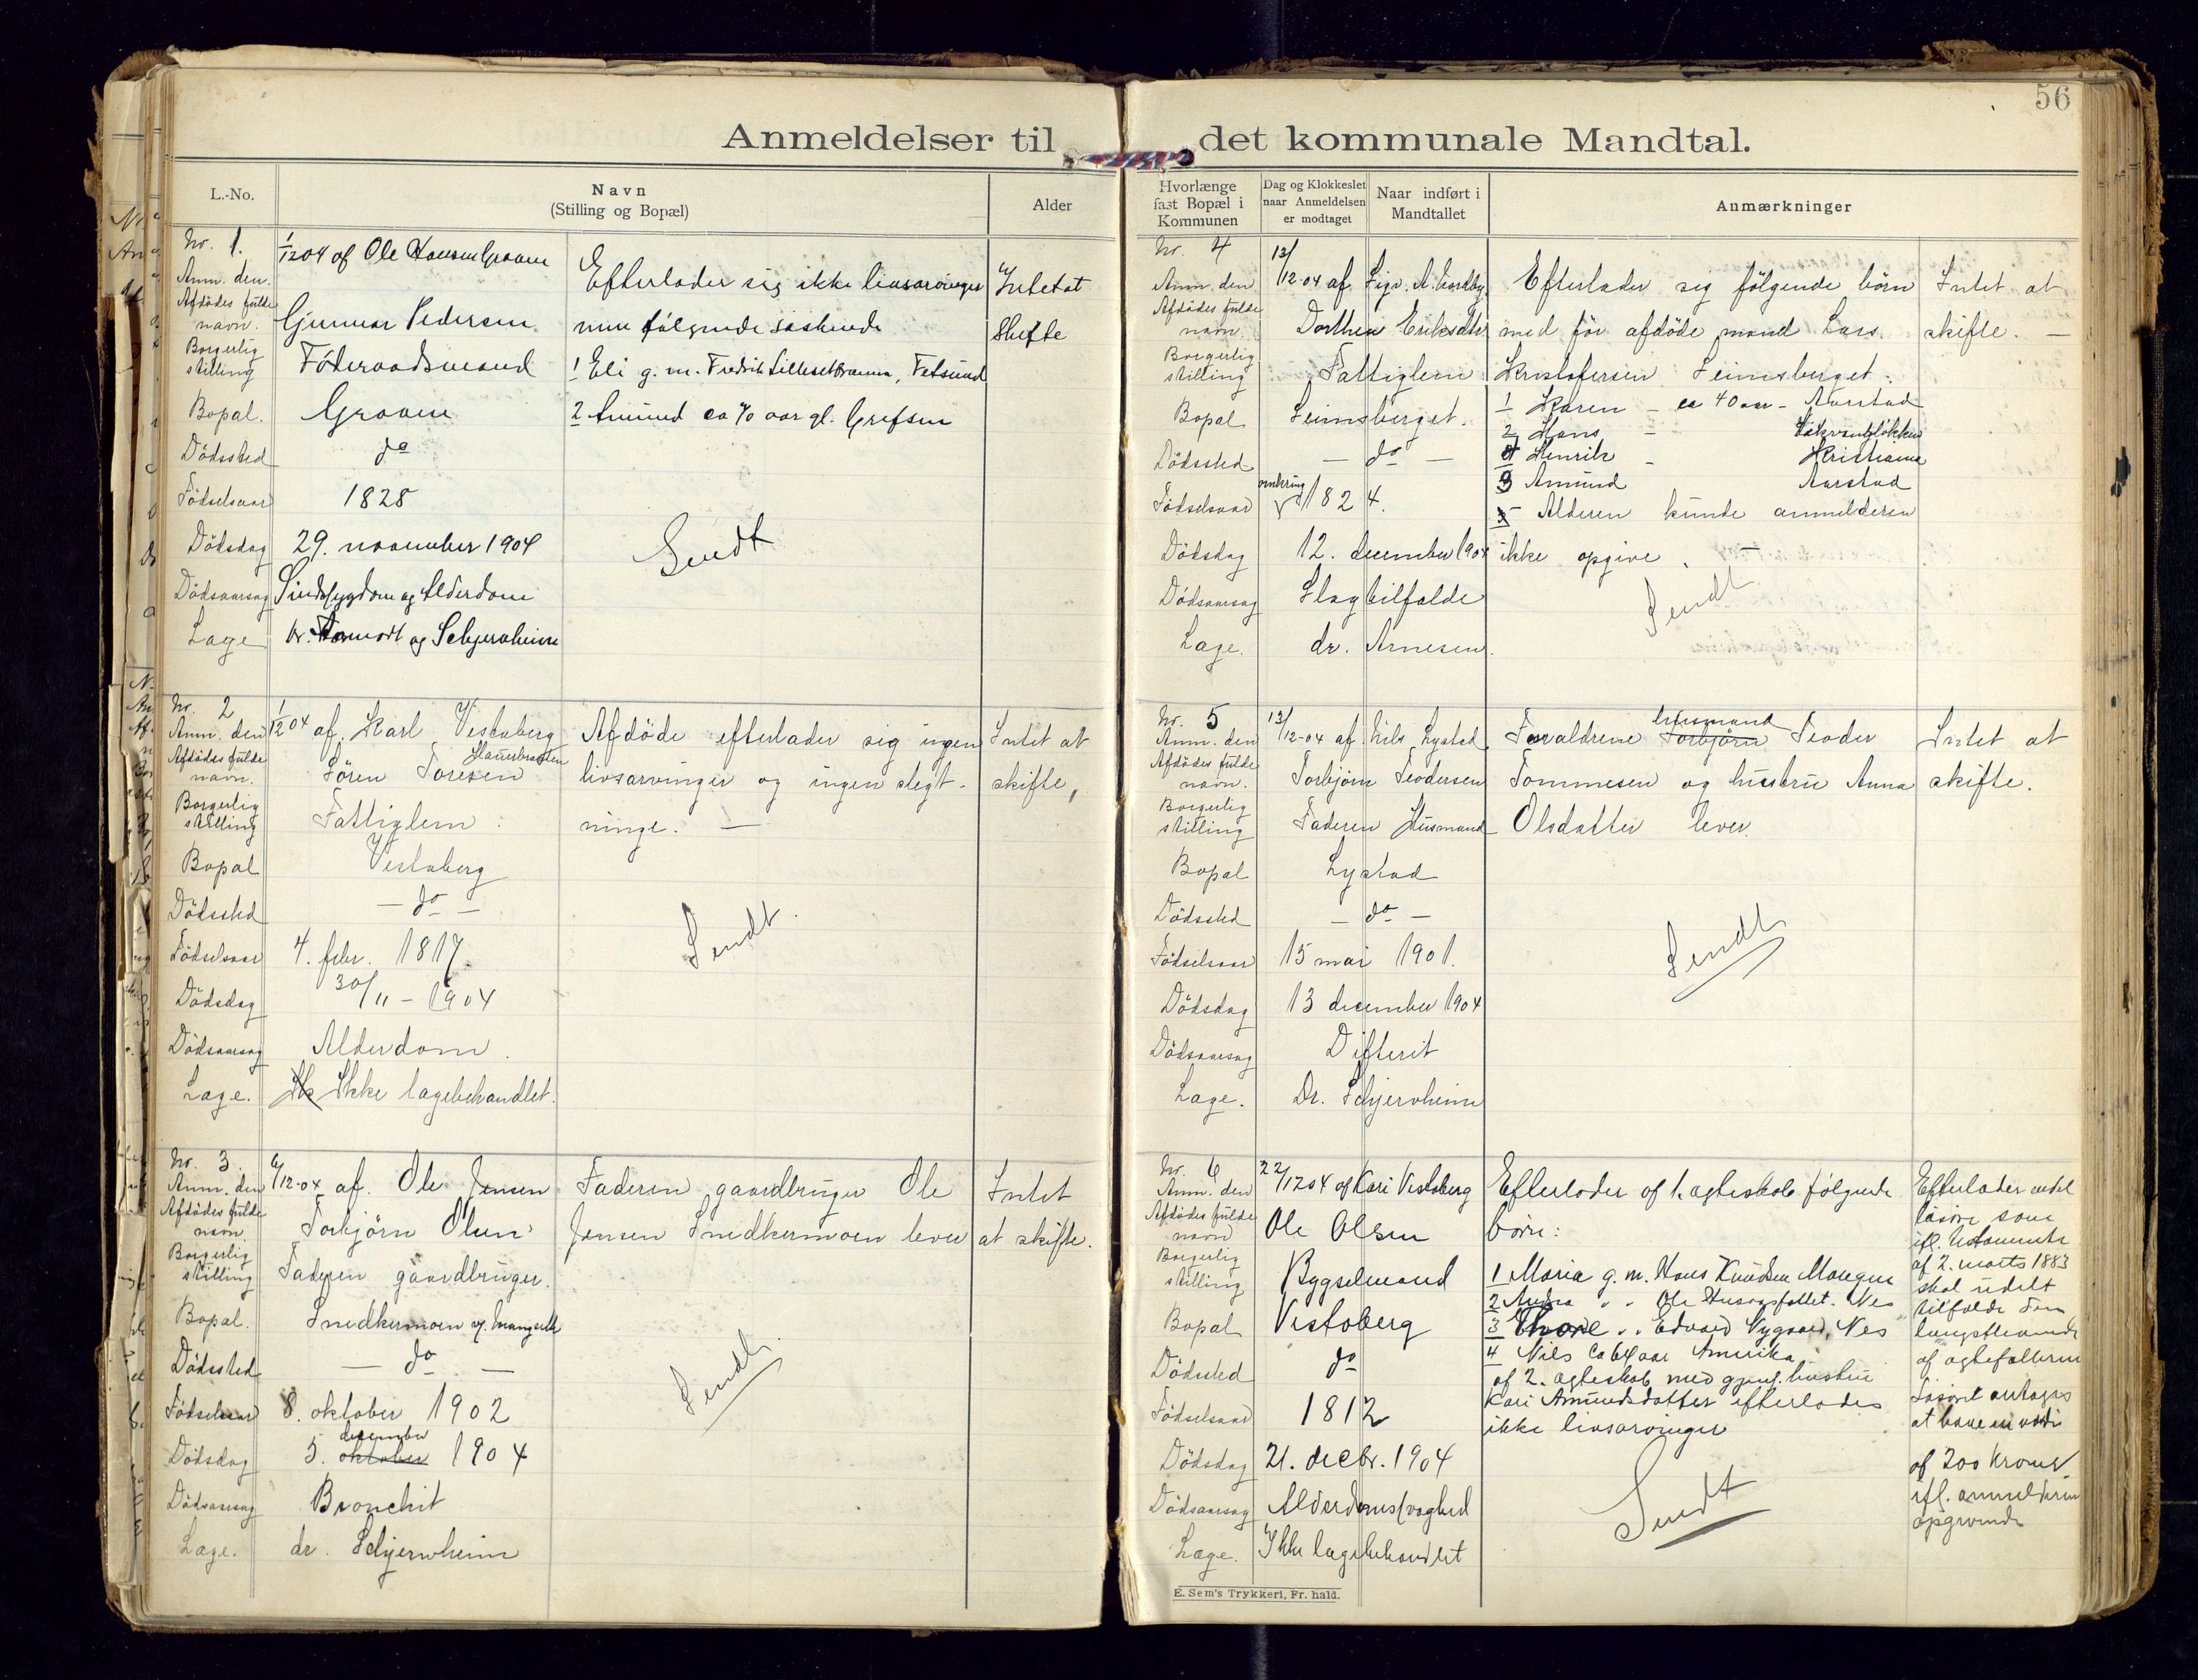 56
Anmeldelser til det kommunale Mandtal.
L.-No.
Navn
(Stilling og Bopæl)
Alder
Hvorlænge
fast Bopæl i
Kommunen
Dag og Klokkeslet
naar Anmeldelsen
er modtaget
Naar indført i
Mandtallet
Anmærkninger
Nr. 1.
Anm. den 1/12 04 af Ole Hansen Graven
Afdödes fulde
navn. Gunnar Pedersen
Borgerlig
stilling Föderaadsmand
Bopæl. Graven
Dödssted do
Födselsaar 1828
Dödsdag 29. november 1904
Dödsaarsag Sindssygdom og Alderdom
Læge dr. og Schjervheim
Efterlader sig ikke livsarvinger
men følgende søskende
1 Eli g. m. Fredrik Fetsund
2 Amund ca 70 aar gl. Grefsen
Sendt
Intet at
skifte
Nr. 2
Anm. den 1/12 04 af Karl Vestaberg
Afdödes fulde
navn. Sören Toresen
Borgerlig
stilling Fattiglem.
Bopæl Vestaberg
Dödssted — do —
Födselsaar 4. febr. 1817.
Dödsdag 30/11 - 1904
Dödsaarsag Alderdom.
Læge. Ik Ikke lægebehandlet.
Afdöde efterlader sig ingen
livsarvinger og ingen slegt-
ninge. —
Sendt.
Intet at
skifte,
Nr. 3.
Anm. den 6/12-04 af. Ole Jensen
Afdödes fulde
navn. Torbjörn Olsen
Borgerlig
stilling Faderen gaardbruger.
Bopæl. Snedkermoen
Dödssted — do —
Födselsaar 8. oktober 1902
december
Dödsdag 5. oktober 1904
Dödsaarsag Bronchit
Læge. dr. Schjervheim
Faderen gaardbruger Ole
Jensen Snedkermoen lever
Sendt.
Intet
at skifte.
Nr. 4
Anm. den 13/12-04 af
Afdödes fulde
navn. Dorthea Eriksdtr
Borgerlig
stilling Fattiglem
Bopæl Leimsberget.
Dödssted — do —
omkring
Födselsaar 1824.
Dödsdag 12. december 1904
Dödsaarsag Slagtilfælde
Læge. dr. Arnesen.
Efterlader sig følgende börn
med för afdöde mand Lars
Kristofersen Leimsberget:
1 Karen — ca 40 aar — Aarstad
2 Hans —
4 Henrik — Kristiania
3 Amund Aarstad
Alderen kunde anmelderen
ikke opgive. —
Sendt
Intet at
skifte. —
Nr. 5
Anm. den 13/12-04 af Nils Lystad
Afdödes fulde
navn. Torbjörn Teodersen
Borgerlig
stilling Faderen Husmand
Bopæl Lystad
Dödssted — do —
Födselsaar 15 mai 1901.
Dödsdag 13 december 1904
Dödsaarsag Difterit
Læge. Dr. Schjervheim
husmand
Forældrene Torbjörn Teoder
Tommesen og hustru Anna
Olsdatter lever.
Sendt
Intet at
skifte.
Nr. 6
Anm. den 22/12 04 af Kari Vestaberg
Afdödes fulde
navn Ole Olsen
Borgerlig
stilling Bygselmand
Bopæl Vestaberg
Dödssted do
Födselsaar 1812
Dödsdag 21. decbr. 1904
Dödsaarsag Alderdomssvaghed
Læge. Ikke lægebehandlet
Efterlader af 1. ægteskab følgende
börn:
1 Maria g. m. Hans Knudsen Mangen
2 " " Ole Nes
3 Thore " " Edvard Nygaard, Nes
4 Nils ca 64 aar Amerika
af 2. ægteskab med gjenl. hustru
Kari Amundsdatter efterlades
ikke livsarvinger
Sendt
Efterlader endel
lösöre som
ifl. testamente
af 2. marts 1883
skal udelt
tilfalde den
længstlevende
af ægtefællerne
Lösöret antages
at have en værdi
af 200 kroner
ifl. anmelderens
opgivende
E. Sem's Trykkeri, Fr. hald.